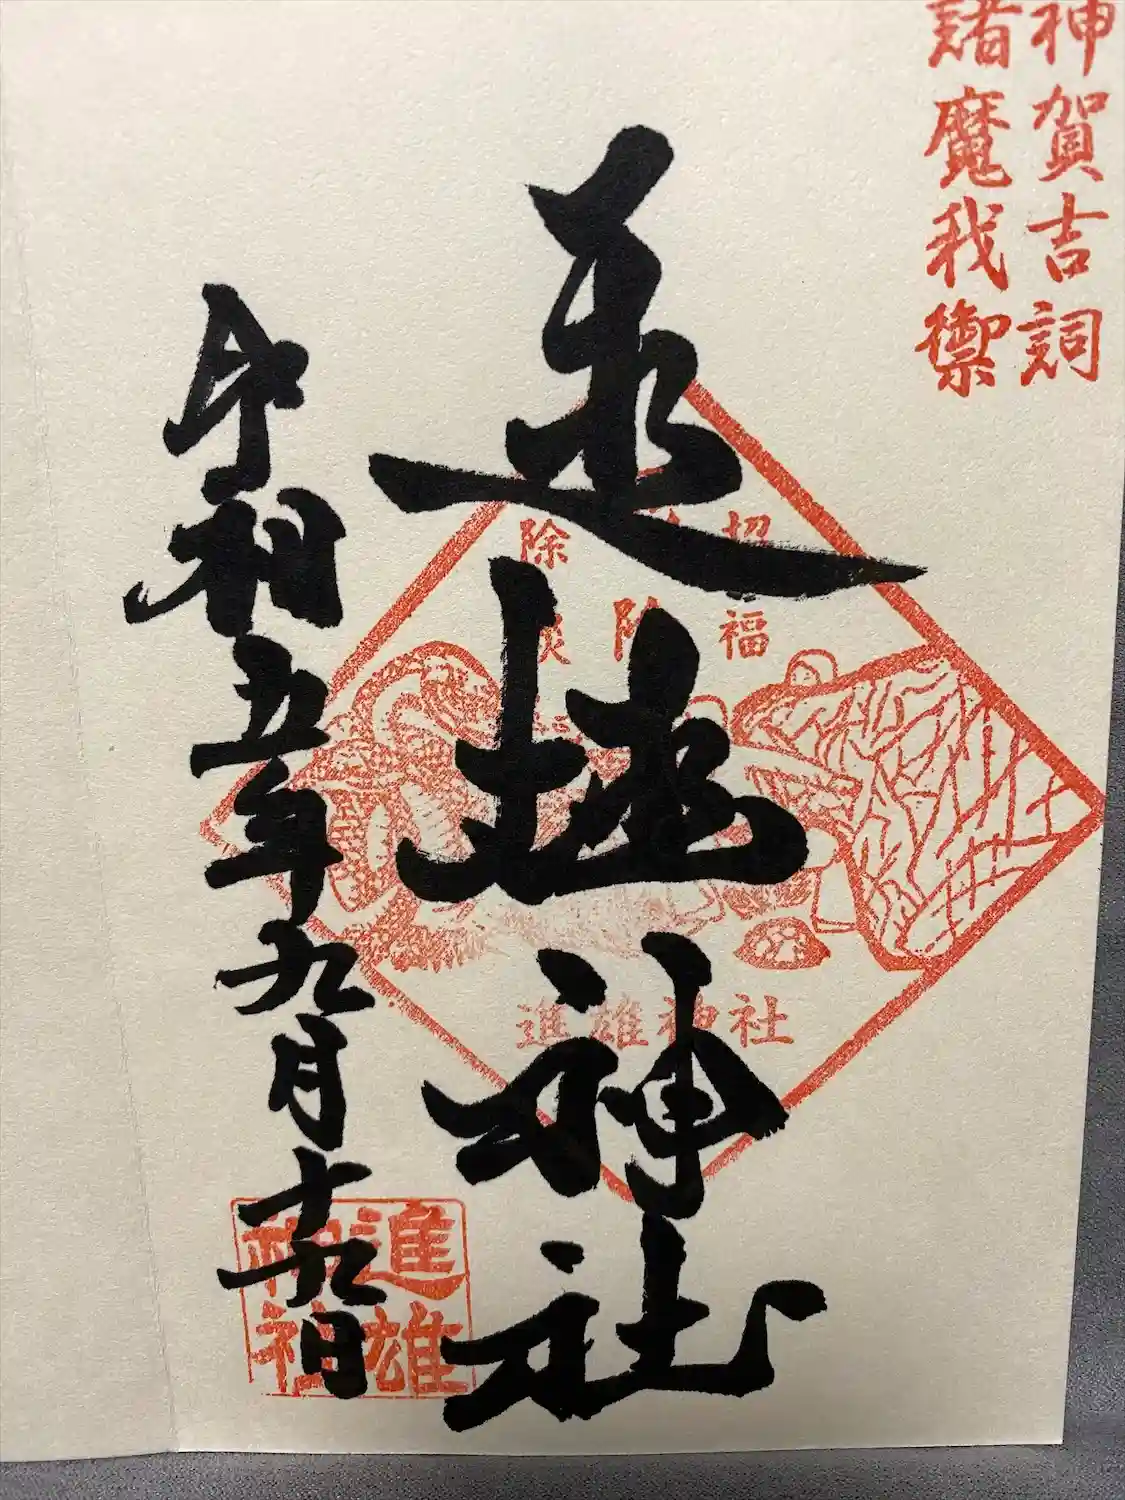 神賀吉詞
諸魔我禦
招福
除
除災
進雄神社
進雄神社
令和五年九月十九日
進雄
神社